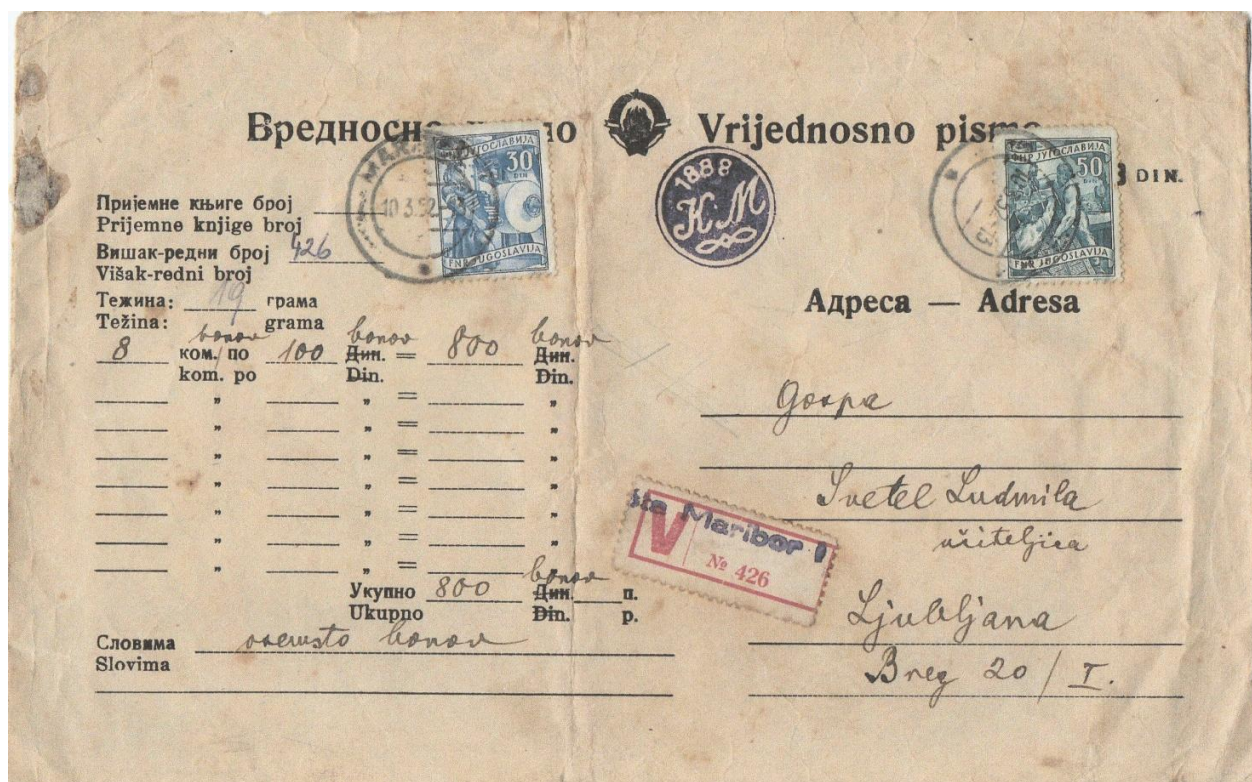 Вредносно Vrijednosno pismo
DIN.
ФНР ЈУГОСЛАВИЈА
30
DIN
FNR JUGOSLAVIJA
10.3.52
1888
K.M
ФНР ЈУГОСЛАВИЈА
50
DIN
FNR JUGOSLAVIJA
Пријемне књиге број
Prijemne knjige broj
Вишак-редни број 426
Višak-redni broj
Тежина: 19 грама
Težina: grama
8 bonov ком. по 100 bonov Дин. = 800 bonov Дин.
kom. po Din. Din.
" " = "
" " = "
" " = "
" " = "
" " = "
" " = "
" " = "
Укупно 800 bonov Дин. п.
Ukupno Din. p.
Словима osemsto bonov
Slovima
Адреса — Adresa
Gospa
Svetel Ludmila
učiteljica
Ljubljana
Breg 20/I.
V
Maribor 1
№ 426